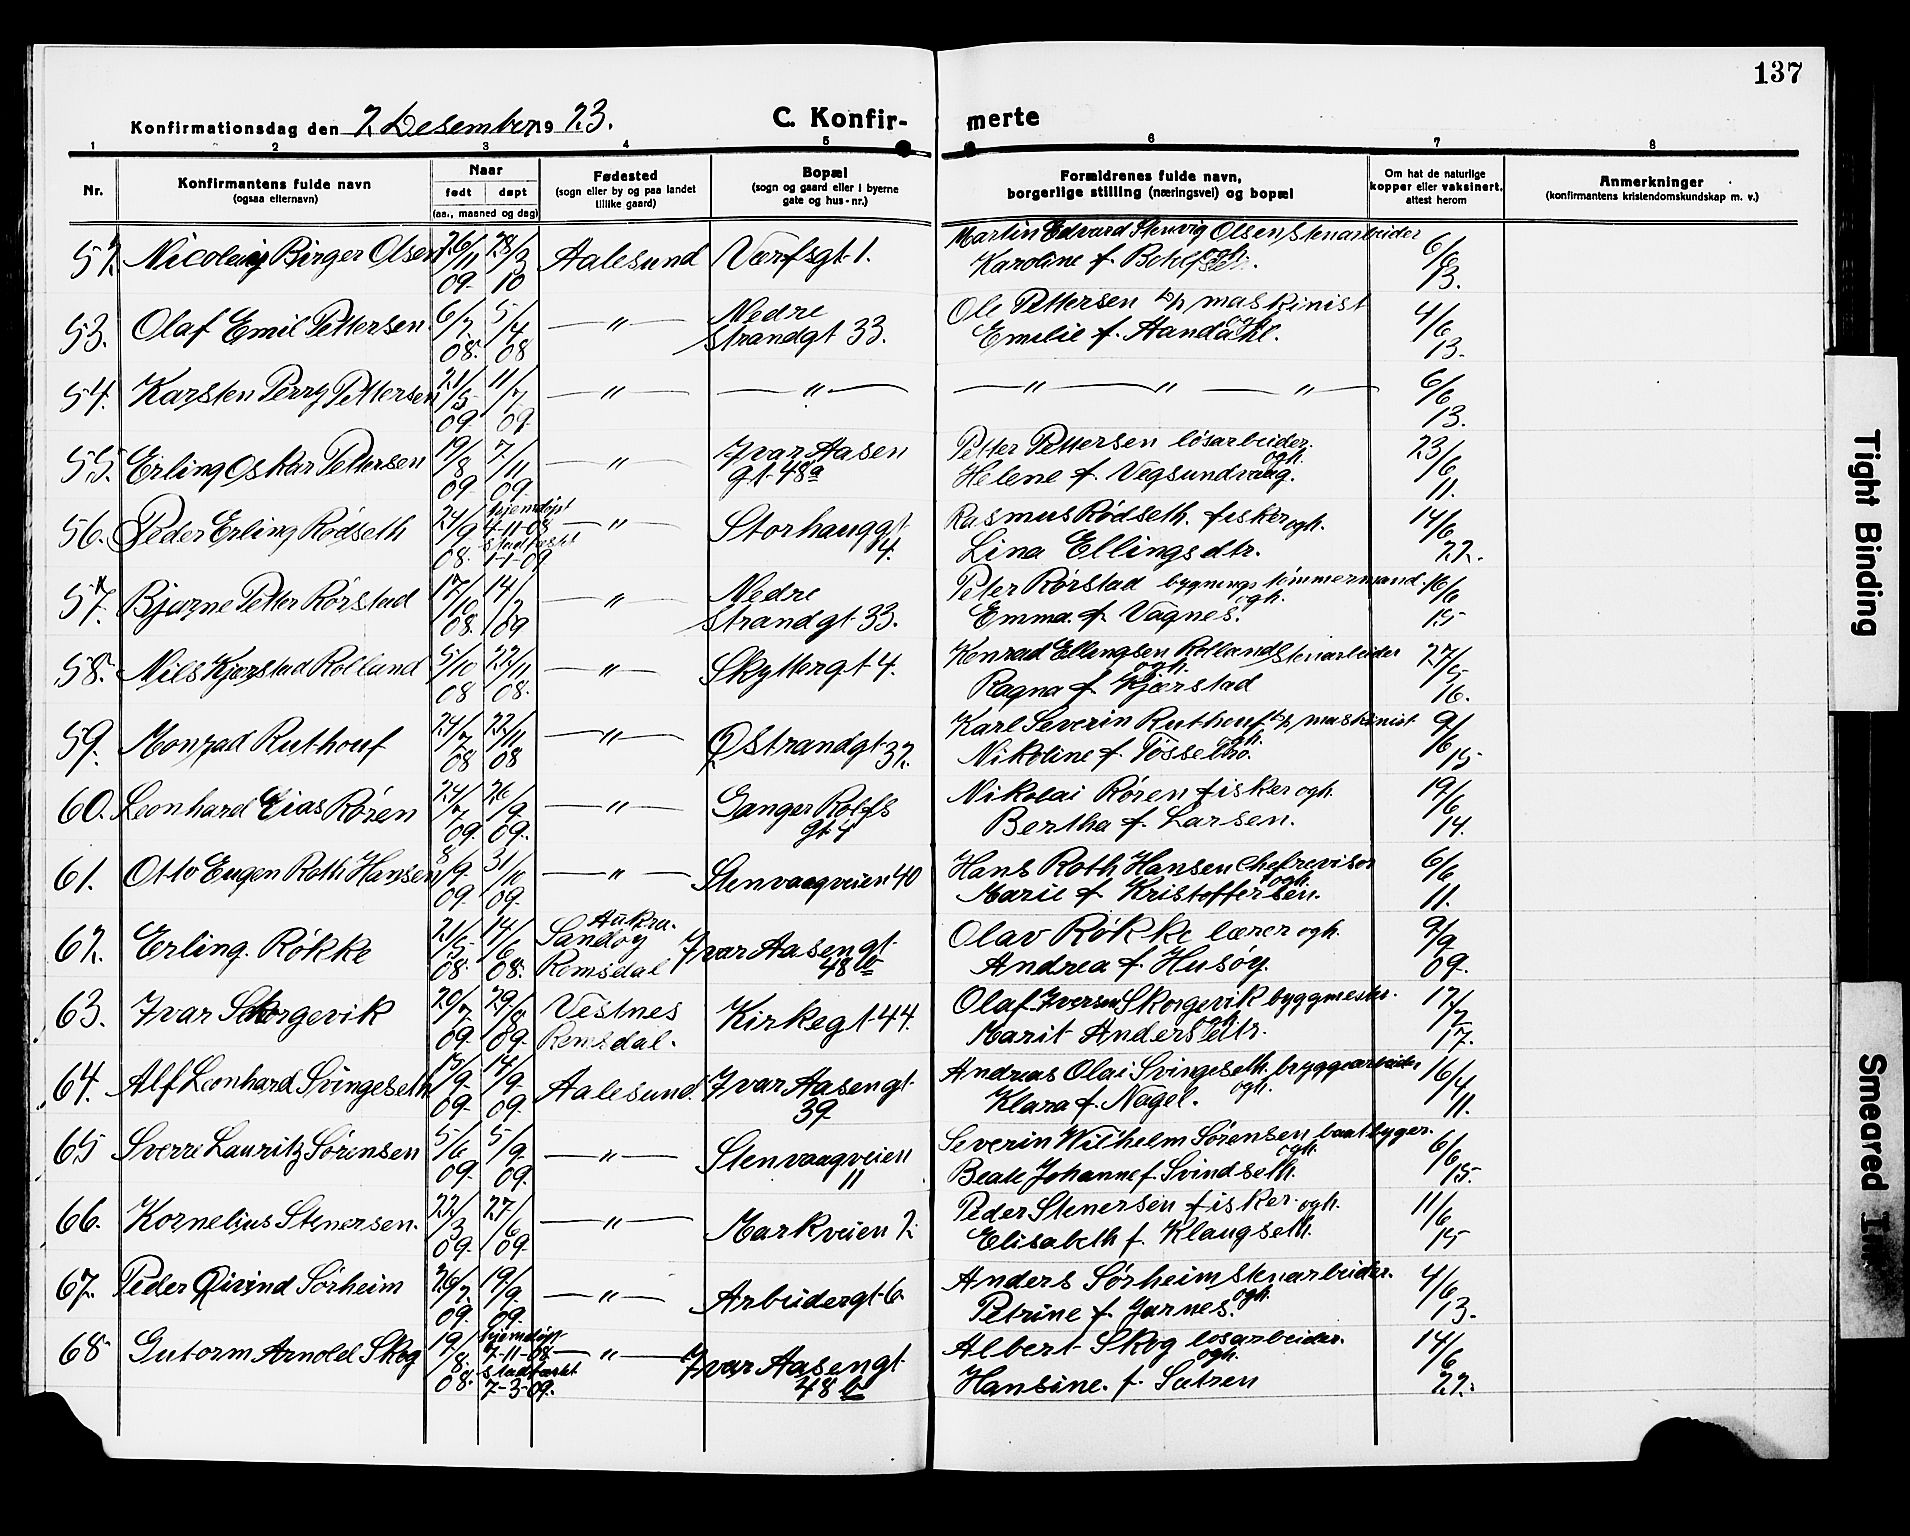 137
Konfirmationsdag den 2. Desember 1923.
C. Konfirmerte
1 2 3 4 5 6 7 8
Nr.
Konfirmantens fulde navn
(ogsaa efternavn)
Naar
født døpt
(aa., maaned og dag)
Fødested
(sogn eller by og paa landet
tillike gaard)
Bopæl
(sogn og gaard eller i byerne
gate og hus-nr.)
Forældrenes fulde navn,
borgerlige stilling (næringsvei) og bopæl
Om hat de naturlige
kopper eller vaksinert,
attest herom
Anmerkninger
(konfirmantens kristendomskundskap m. v.)
52. Nicolai Birger Olsen 26/11 09. 28/3 10 Aalesund Værfsgt. 1. Martin Edvard Stenvig Olsen stenarbeider
Karoline f. 6/6 13.
53. Olaf Emil Pettersen 6/2 08. 5/4 08 — " — Nedre
Strandgt 33. Ole Pettersen maskinist
Emilie f. Aandahl. ogh. 4/6 13.
54. Karsten Perry Pettersen 21/5 09. 11/7 09. — " — — " — — " — " — " — 6/6 13.
55. Erling Oskar Pettersen 19/8 09 7/11 09. — " — Ivar Aasen
gt. 48a Petter Pettersen løsarbeider.
ogh.
Helene f. Vegsundvaag. 23/6 11.
56. Peder Erling Rødseth 24/9 08. hjemdøpt
4-11-08
stadfæstet
1-1-09 — " — Storhauggt
4. Rasmus Rødseth. fisker ogh.
Lina Ellingsdtr. 14/6 22.
57. Bjarne Petter Rørstad 17/10 08. 14/2 09 — " — Nedre
Strandgt. 33. Peter Rørstad bygningstømmermand.
ogh.
Emma f. Vagnes. 16/6 15
58. Nils Kjerstad Rolland 5/10 08 22/11 08. — " — Skyttergt 4. Konrad Ellingsen Rolland Stenarbeider
ogh.
Ragna f. Kjærstad 27/5 16.
59. Monrad Ruthouf 24/7 08 22/11 08 — " — Ø Strandgt. 32. Karl Severin Ruthouf maskinist
ogh.
Nikoline f. Tössebro. 9/6 15
60. Leonhard Elias Røren 24/7 09. 26/9 09. — " — Ganger Rolfs
gt. 4 Nikolai Røren fisker ogh.
Bertha f. Larsen. 19/6 14.
61. Otto Eugen Roth Hansen 8/9 09. 31/10 09. — " — Stenvaagveien 40 Hans Roth Hansen Chefrevisor
ogh.
Marie f. Kristoffersen. 6/6 11.
62. Erling. Røkke 21/5 08. 14/6 08. Aukra.
Sandøy
Romsdal Ivar Aasengt.
48 b Olav Røkke lærer ogh.
Andrea f. Husøy. 9/9 09.
63. Ivar Skorgevik 20/7 09. 29/8 09. Vestnes
Romsdal. Kirkegt 44. Olaf Iversen Skorgevik byggmester.
ogh.
Marit Andersdtr. 17/2 17.
64. Alf Leonhard Svingeseth 09. 14/9 09. Aalesund. Ivar Aasengt.
39 Andreas Olai Svingeseth. bryggearbeider
ogh.
Klara f. Nagel. 16/4 11.
65 Sverre Lauritz Sørensen 5/6 09. 5/9 09. — " — Stenvaagveien
11 Severin Wilhelm Sørensen baatbyger.
ogh.
Beate Johanne f. Svindseth. 6/6 15.
66. Kornelius Stenersen. 22/3 09. 27/6 09. — " — Markveien 2. Peder Stenersen fisker. ogh.
Elisabeth f. Klaugseth. 11/6 15
67. Peder Øivind Sørheim 26/7. 09. 19/9 09. — " — Arbeidergt. 6. Anders Sørheim stenarbeider.
ogh.
Petrine f. Garnes. 4/6 13.
68 Gutorm Arnold Skog 19/8. 08. hjemdøpt
7-11-08
stadfæstet
7-3-09. — " — Ivar Aasengt
48 b Albert Skog løsarbeider.
ogh.
Hansine. f. Sætren 14/6 22.
Tight Binding
Smeared Ink